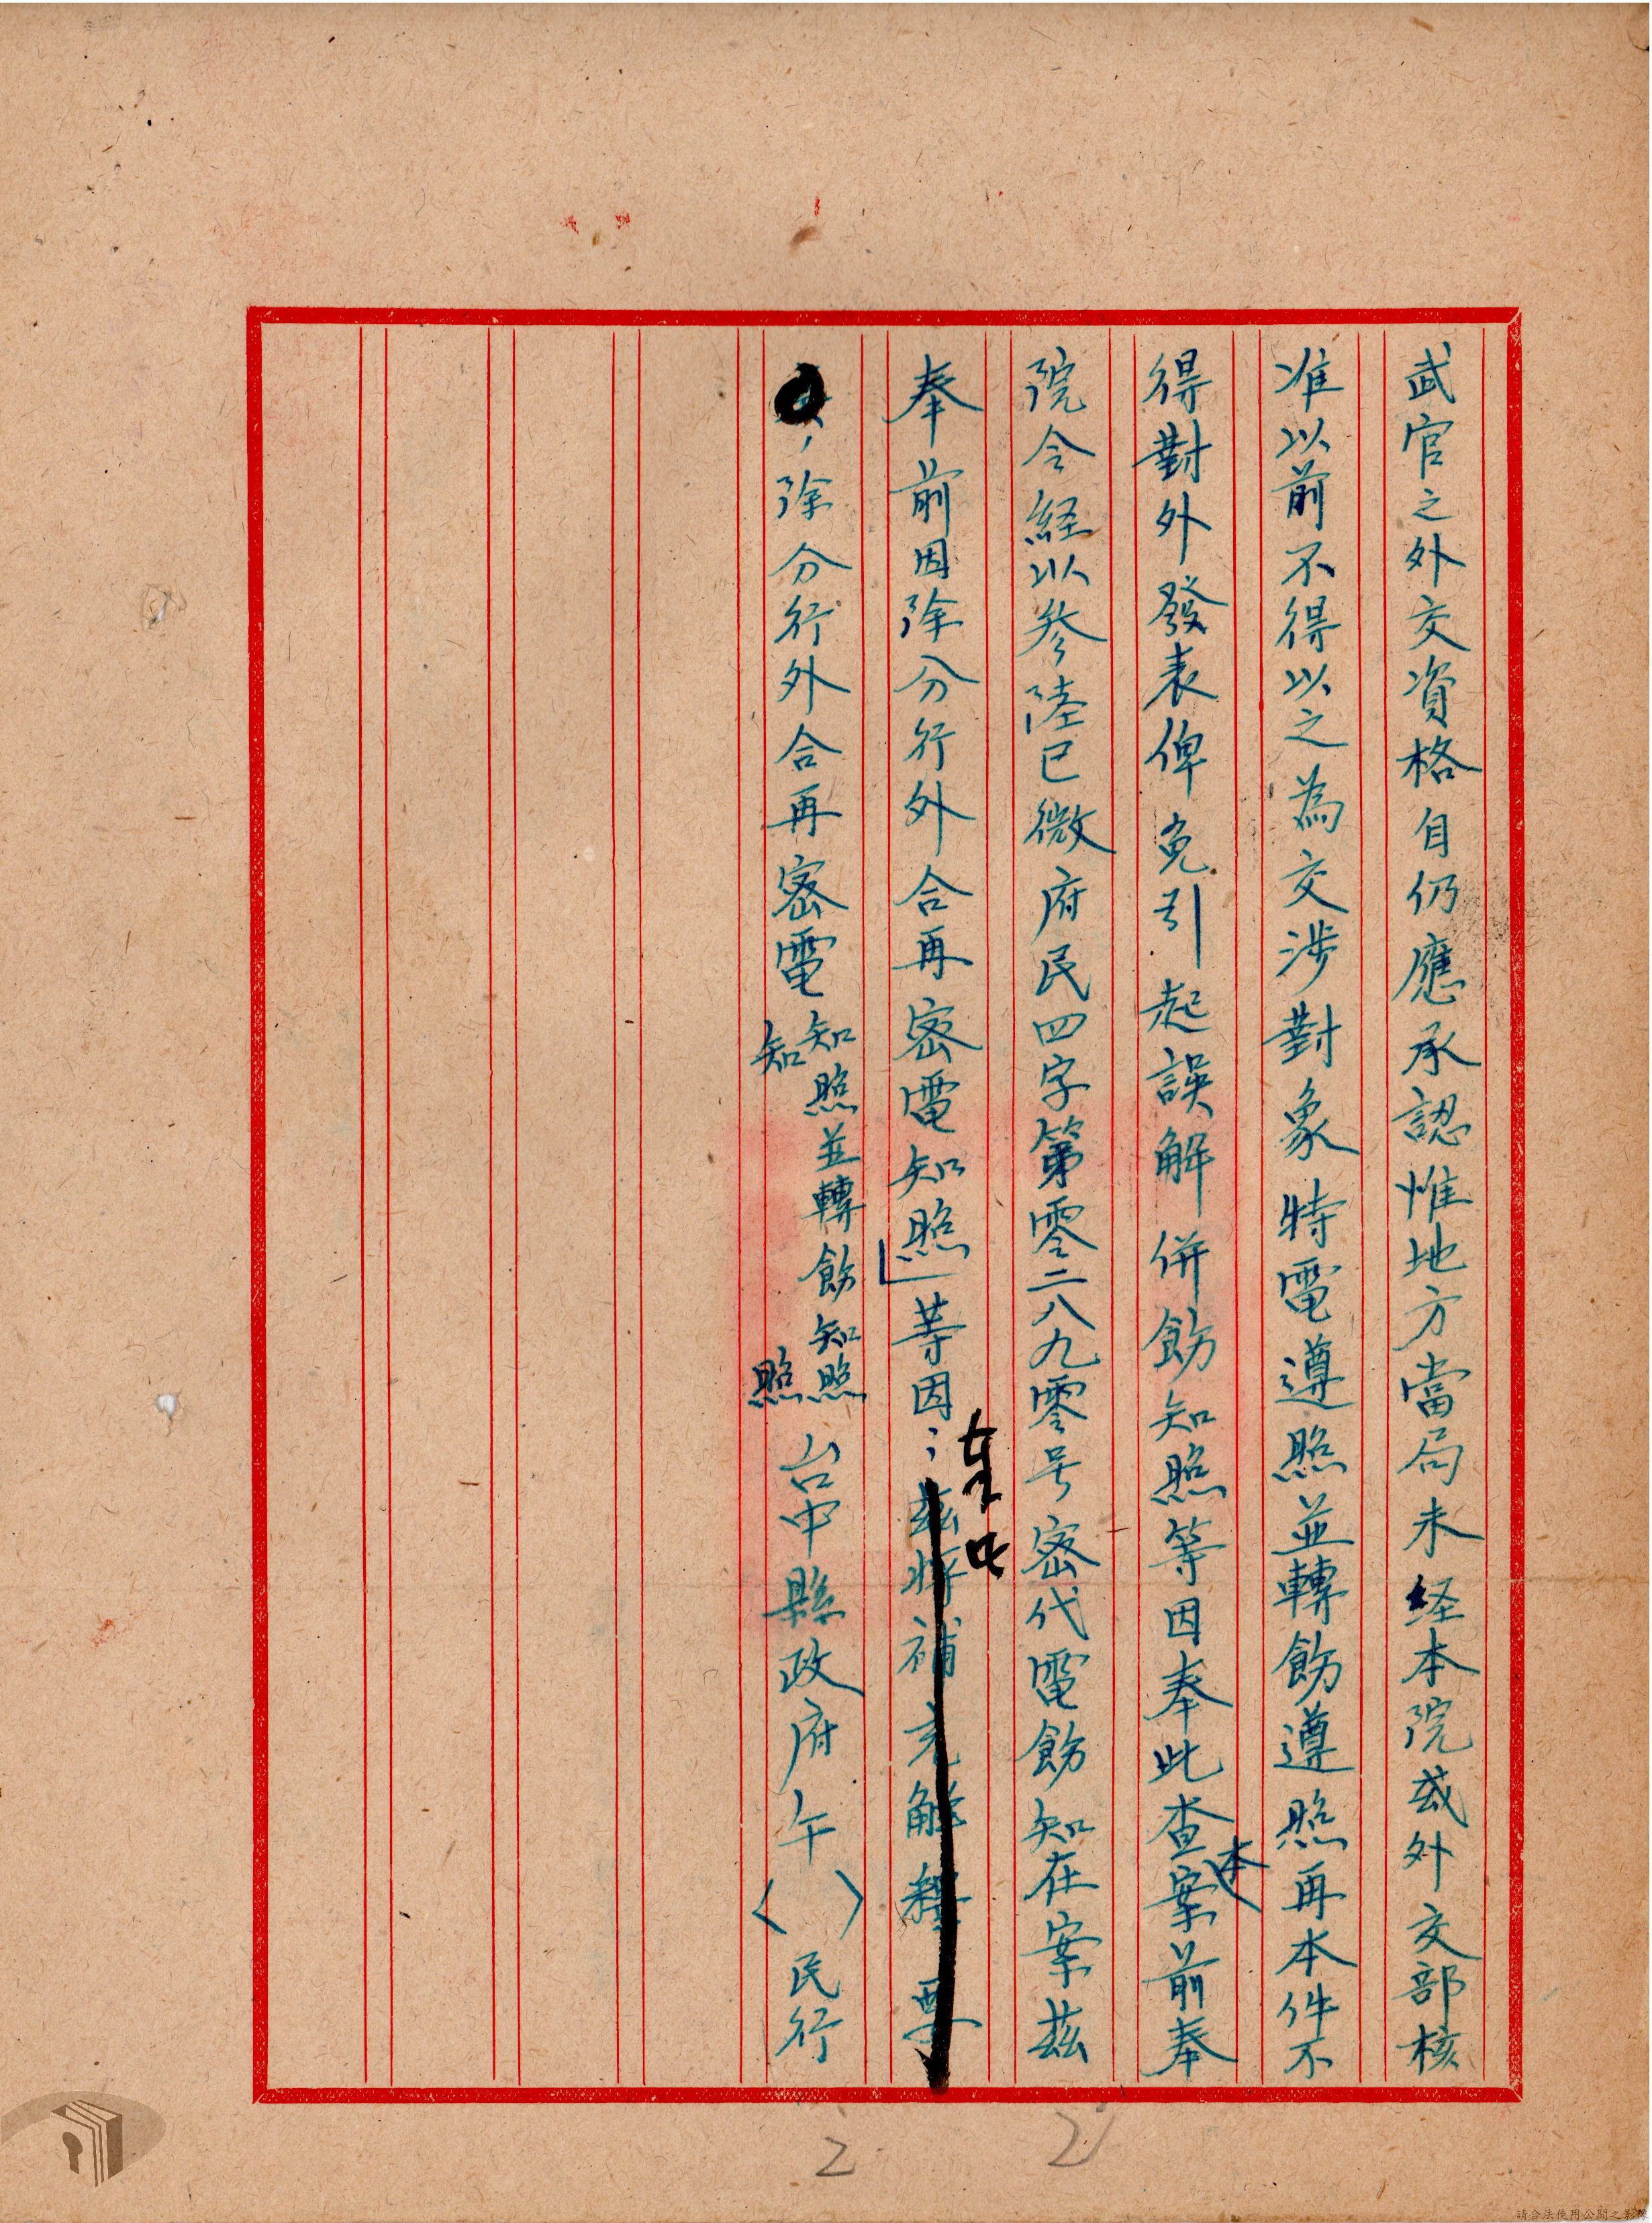 武官之外交資格自仍應承認惟地方當局未経本院或外交部核
准以前不得以之為交涉對象特電遵照並轉飭遵照再本件不
得對外發表俾免引起誤解併飭知照等因奉此查本案前奉
院令経以參陸巳微府民四字第零二八九零号密代電飭知在案茲
奉前因除分行外合再密電知照」等因;茲將補充解釋要
奉此
,除分行外合再密電知照並轉飭知照
知照
台中縣政府午〈 〉民行
2
2
請合法使用公開之影像